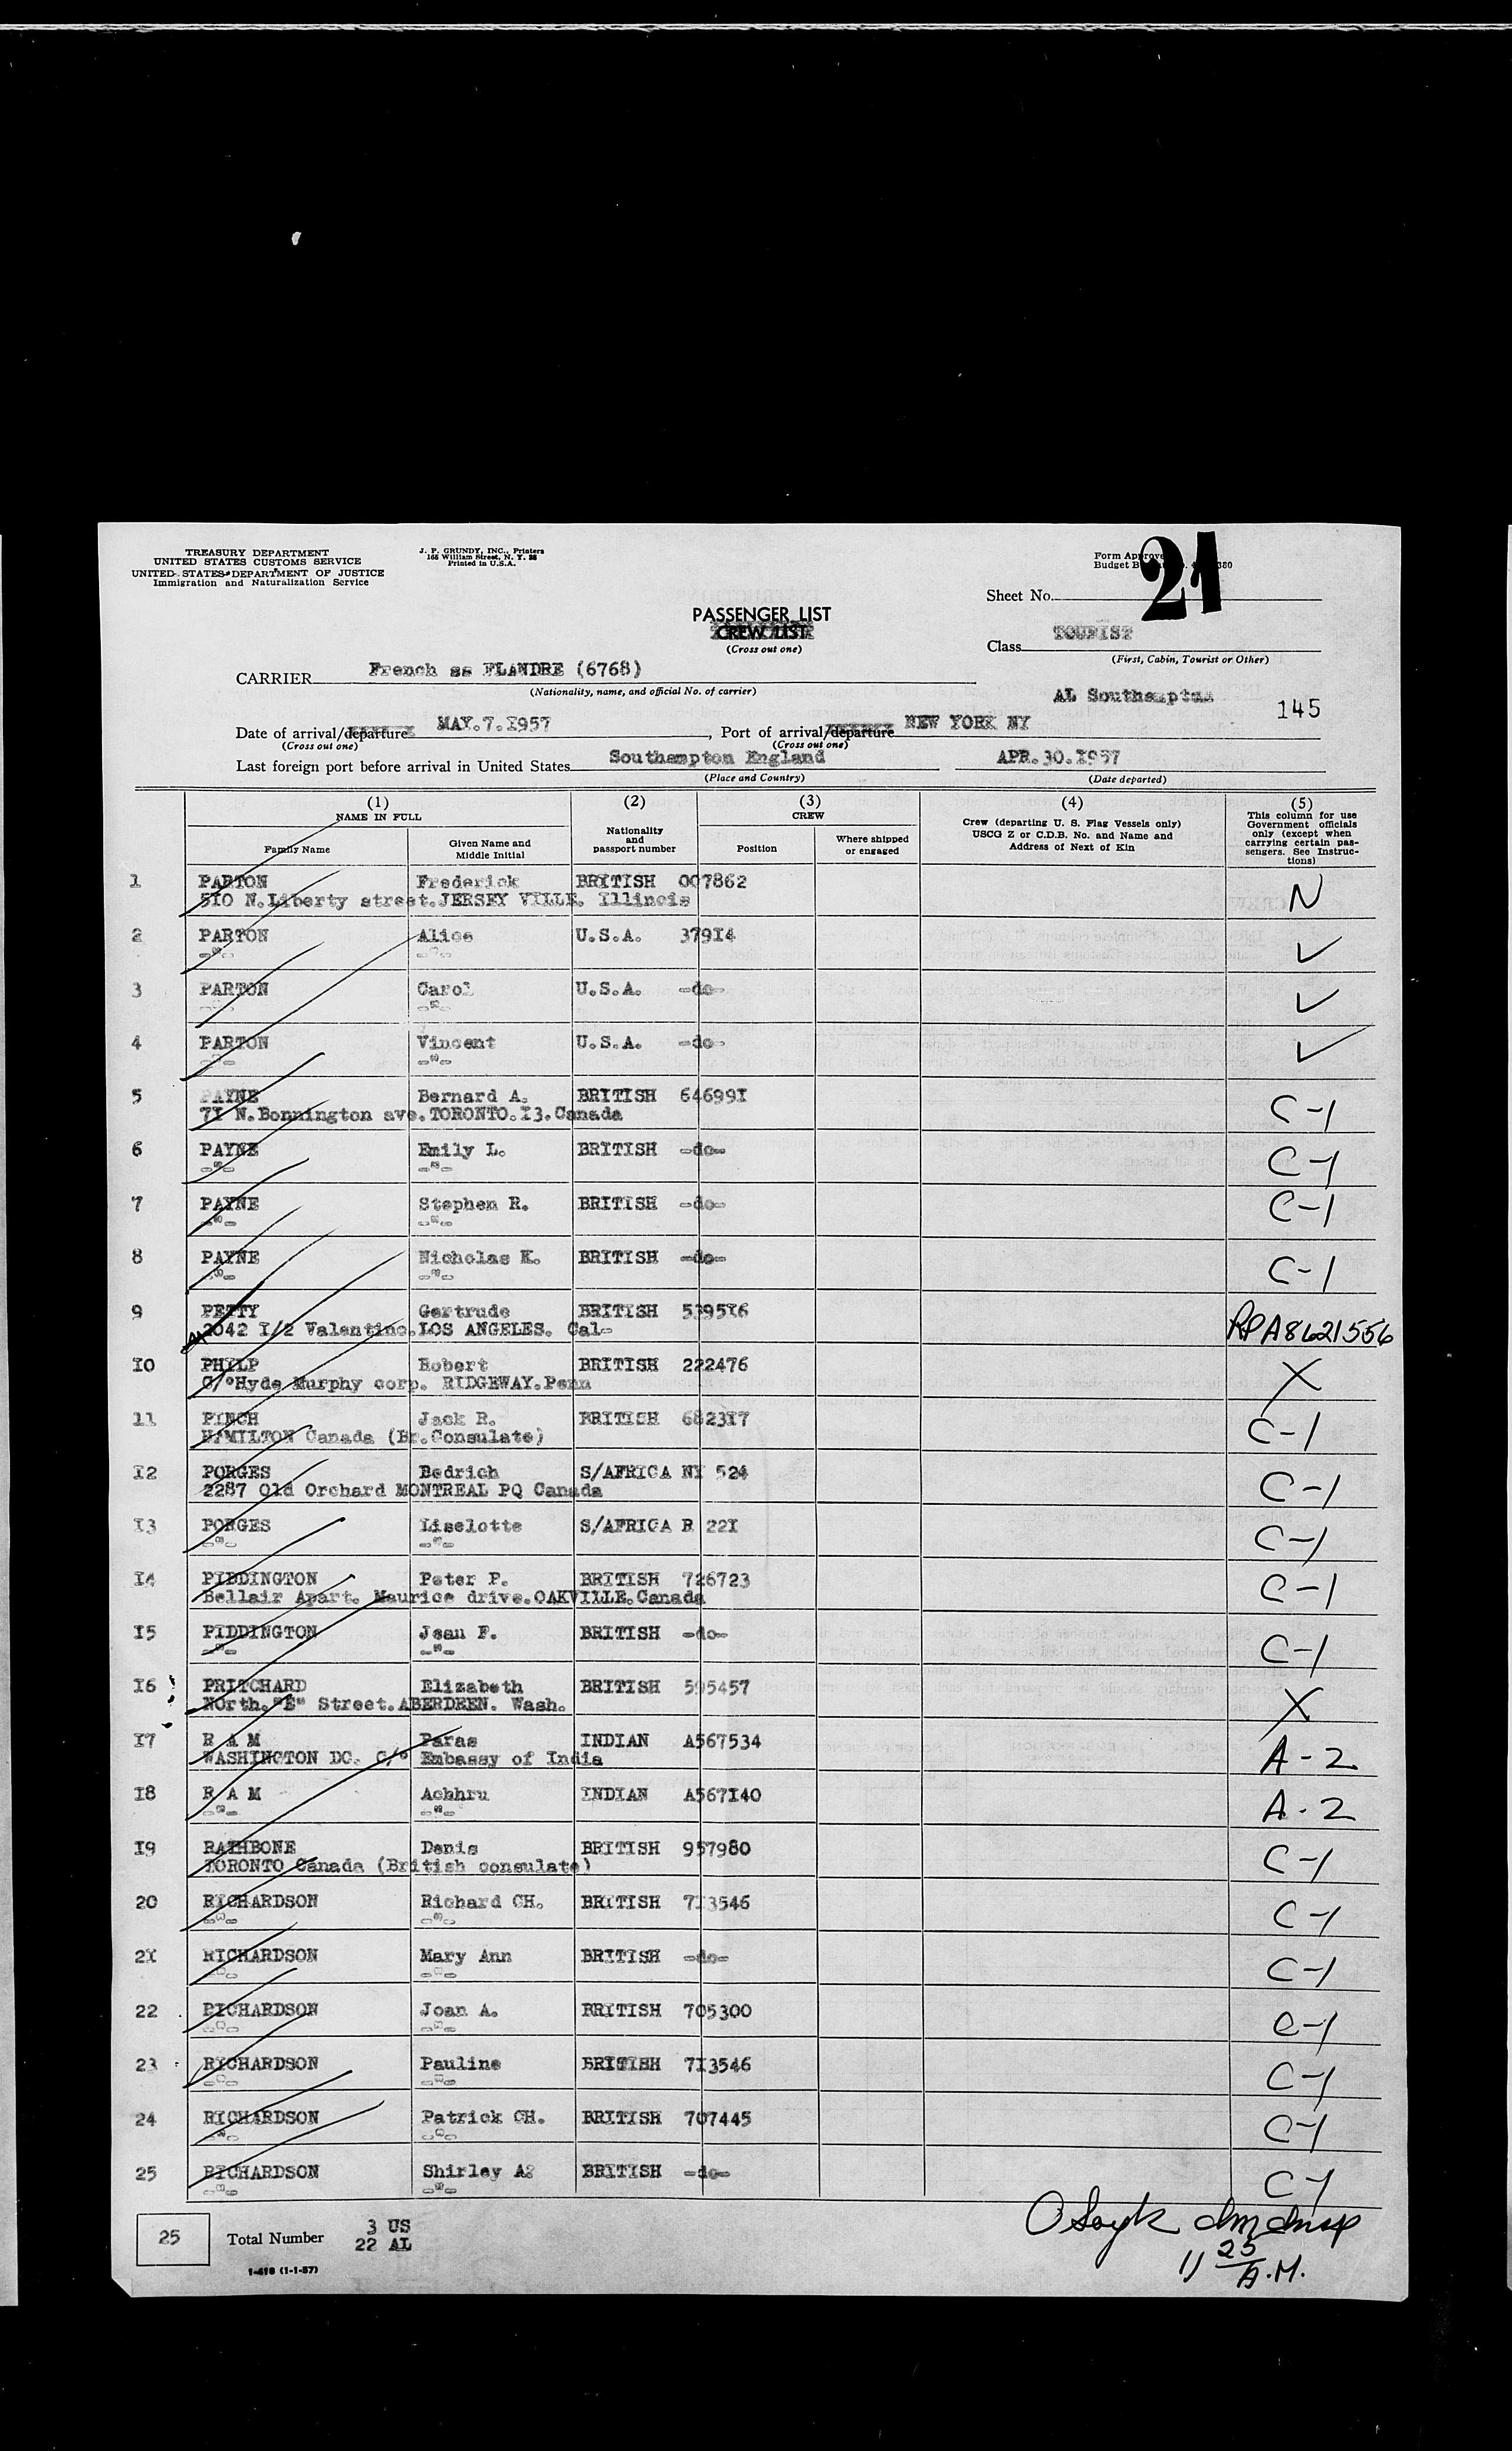 TREASURY DEPARTMENT
UNITED STATES CUSTOMS SERVICE
UNITED STATES DEPARTMENT OF JUSTICE
Immigration and Naturalization Service
J. P. GRUNDY, INC., Printers
165 William Street, N. Y. 38
Printed in U.S.A.
Form Approve
Budget B
380
21
Sheet No.
PASSENGER LIST
CREW LIST
(Cross out one)
Class TOURIST
(First, Cabin, Tourist or Other)
CARRIER French ss FLANDRE (6768)
(Nationality, name, and official No. of carrier)
AL Southampton
145
Date of arrival/departure MAY.7.I957, Port of arrival/departure NEW YORK NY
(Cross out one) (Cross out one)
Last foreign port before arrival in United States Southampton England APR.30.I957
(Place and Country) (Date departed)
(1) (2) (3) (4) (5)
NAME IN FULL
Family Name
Given Name and Middle Initial
Nationality and passport number
CREW
Position
Where shipped or engaged
Crew (departing U. S. Flag Vessels only)
USCG Z or C.D.B. No. and Name and
Address of Next of Kin
This column for use
Government officials
only (except when
carrying certain pas-
sengers. See Instruc-
tions)
1 PARTON Frederick BRITISH 007862 N
5I0 N.Liberty street.JERSEY VILLE. Illinois
2 PARTON Alice U.S.A. 379I4 ✓
-"- -"-
3 PARTON Carol U.S.A. -do- ✓
-"- -"-
4 PARTON Vincent U.S.A. -do- ✓
-"- -"-
5 PAYNE Bernard A. BRITISH 64699I C-1
7I N.Bonnington ave.TORONTO.I3.Canada
6 PAYNE Emily L. BRITISH -do- C-1
-"- -"-
7 PAYNE Stephen R. BRITISH -do- C-1
-"- -"-
8 PAYNE Nicholas K. BRITISH -do- C-1
-"- -"-
9 PETTY Gertrude BRITISH 5395I6 RPA8621556
2042 I/2 Valentino.LOS ANGELES. Cal-
I0 PHILP Robert BRITISH 222476 X
C/°Hyde Murphy corp. RIDGEWAY.Penn
11 PINCH Jack R. BRITISH 6823I7 C-1
HAMILTON Canada (Br.Consulate)
I2 PORGES Bedrich S/AFRICA NY 524 C-1
2287 Old Orchard MONTREAL PQ Canada
I3 PORGES Liselotte S/AFRICA R 22I C-1
-"- -"-
I4 PIDDINGTON Peter P. BRITISH 726723 C-1
Bellair Apart. Maurice drive.OAKVILLE.Canada
I5 PIDDINGTON Jean F. BRITISH -do- C-1
-"- -"-
I6 PRITCHARD Elizabeth BRITISH 595457 X
North."B" Street.ABERDEEN. Wash.
I7 R A M Paras INDIAN A567534 A-2
WASHINGTON DC. C/° Embassy of India
I8 R A M Achhru INDIAN A567I40 A-2
-"- -"-
I9 RATHBONE Denis BRITISH 957980 C-1
TORONTO Canada (British consulate)
20 RICHARDSON Richard CH. BRITISH 7I3546 C-1
-"- -"-
2I RICHARDSON Mary Ann BRITISH -do- C-1
-"- -"-
22 RICHARDSON Joan A. BRITISH 705300 C-1
-"- -"-
23 RICHARDSON Pauline BRITISH 7I3546 C-1
-"- -"-
24 RICHARDSON Patrick CH. BRITISH 707445 C-1
-"- -"-
25 RICHARDSON Shirley A. BRITISH -do- C-1
-"- -"-
25 Total Number 3 US
22 AL
I-418 (1-1-57)
11 25
A.M.